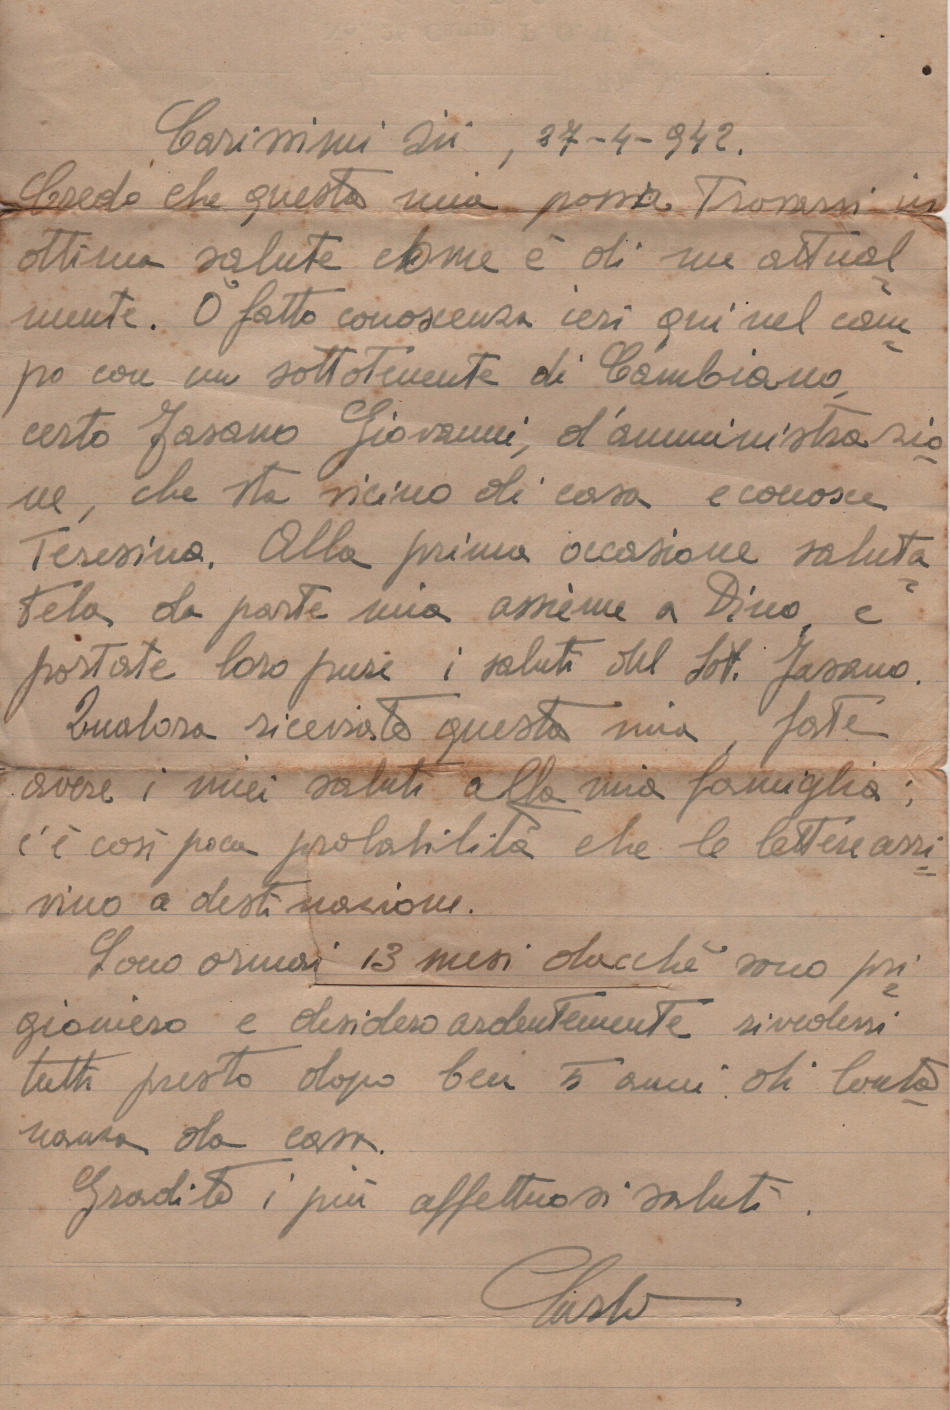 Carissimi Zii, 27-4-942.
Credo che questa mia possa trovarvi in
ottima salute come è di me attual
mente. Ò fatto conoscenza ieri qui nel cam
po con un sottotenente di Cambiano,
certo Fasano Giovanni, d'amministrazio
ne, che sta vicino di casa e conosce
Teresina. Alla prima occasione saluta
tela da parte mia assieme a Dino, e
portate loro pure i saluti del Sot. Fasano.
Qualora riceviate questa mia, fate
avere i miei saluti alla mia famiglia;
c'è così poca probabilità che le lettere arri
vino a destinazione.
Sono ormai 13 mesi dacchè sono pri
gioniero e desidero ardentemente rivedervi
tutti presto dopo ben 5 anni di lonta
nanza da casa.
Gradite i più affettuosi saluti.
Carlo